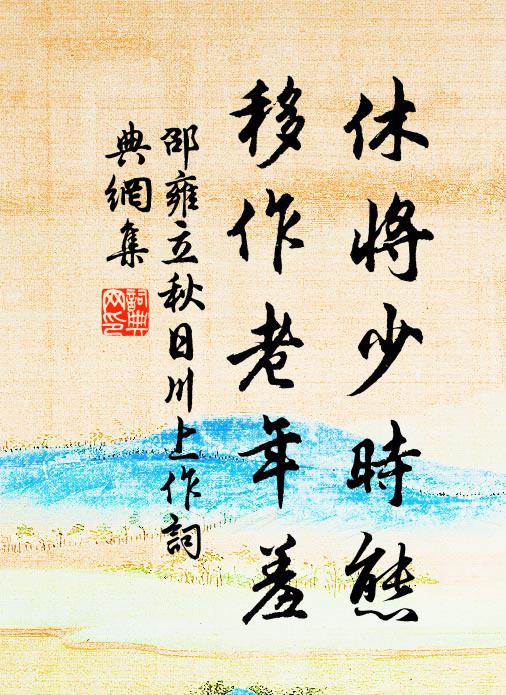 休將少時態
移作老年羞
邵雍立秋日川上作詞
典網集
詞典
网印